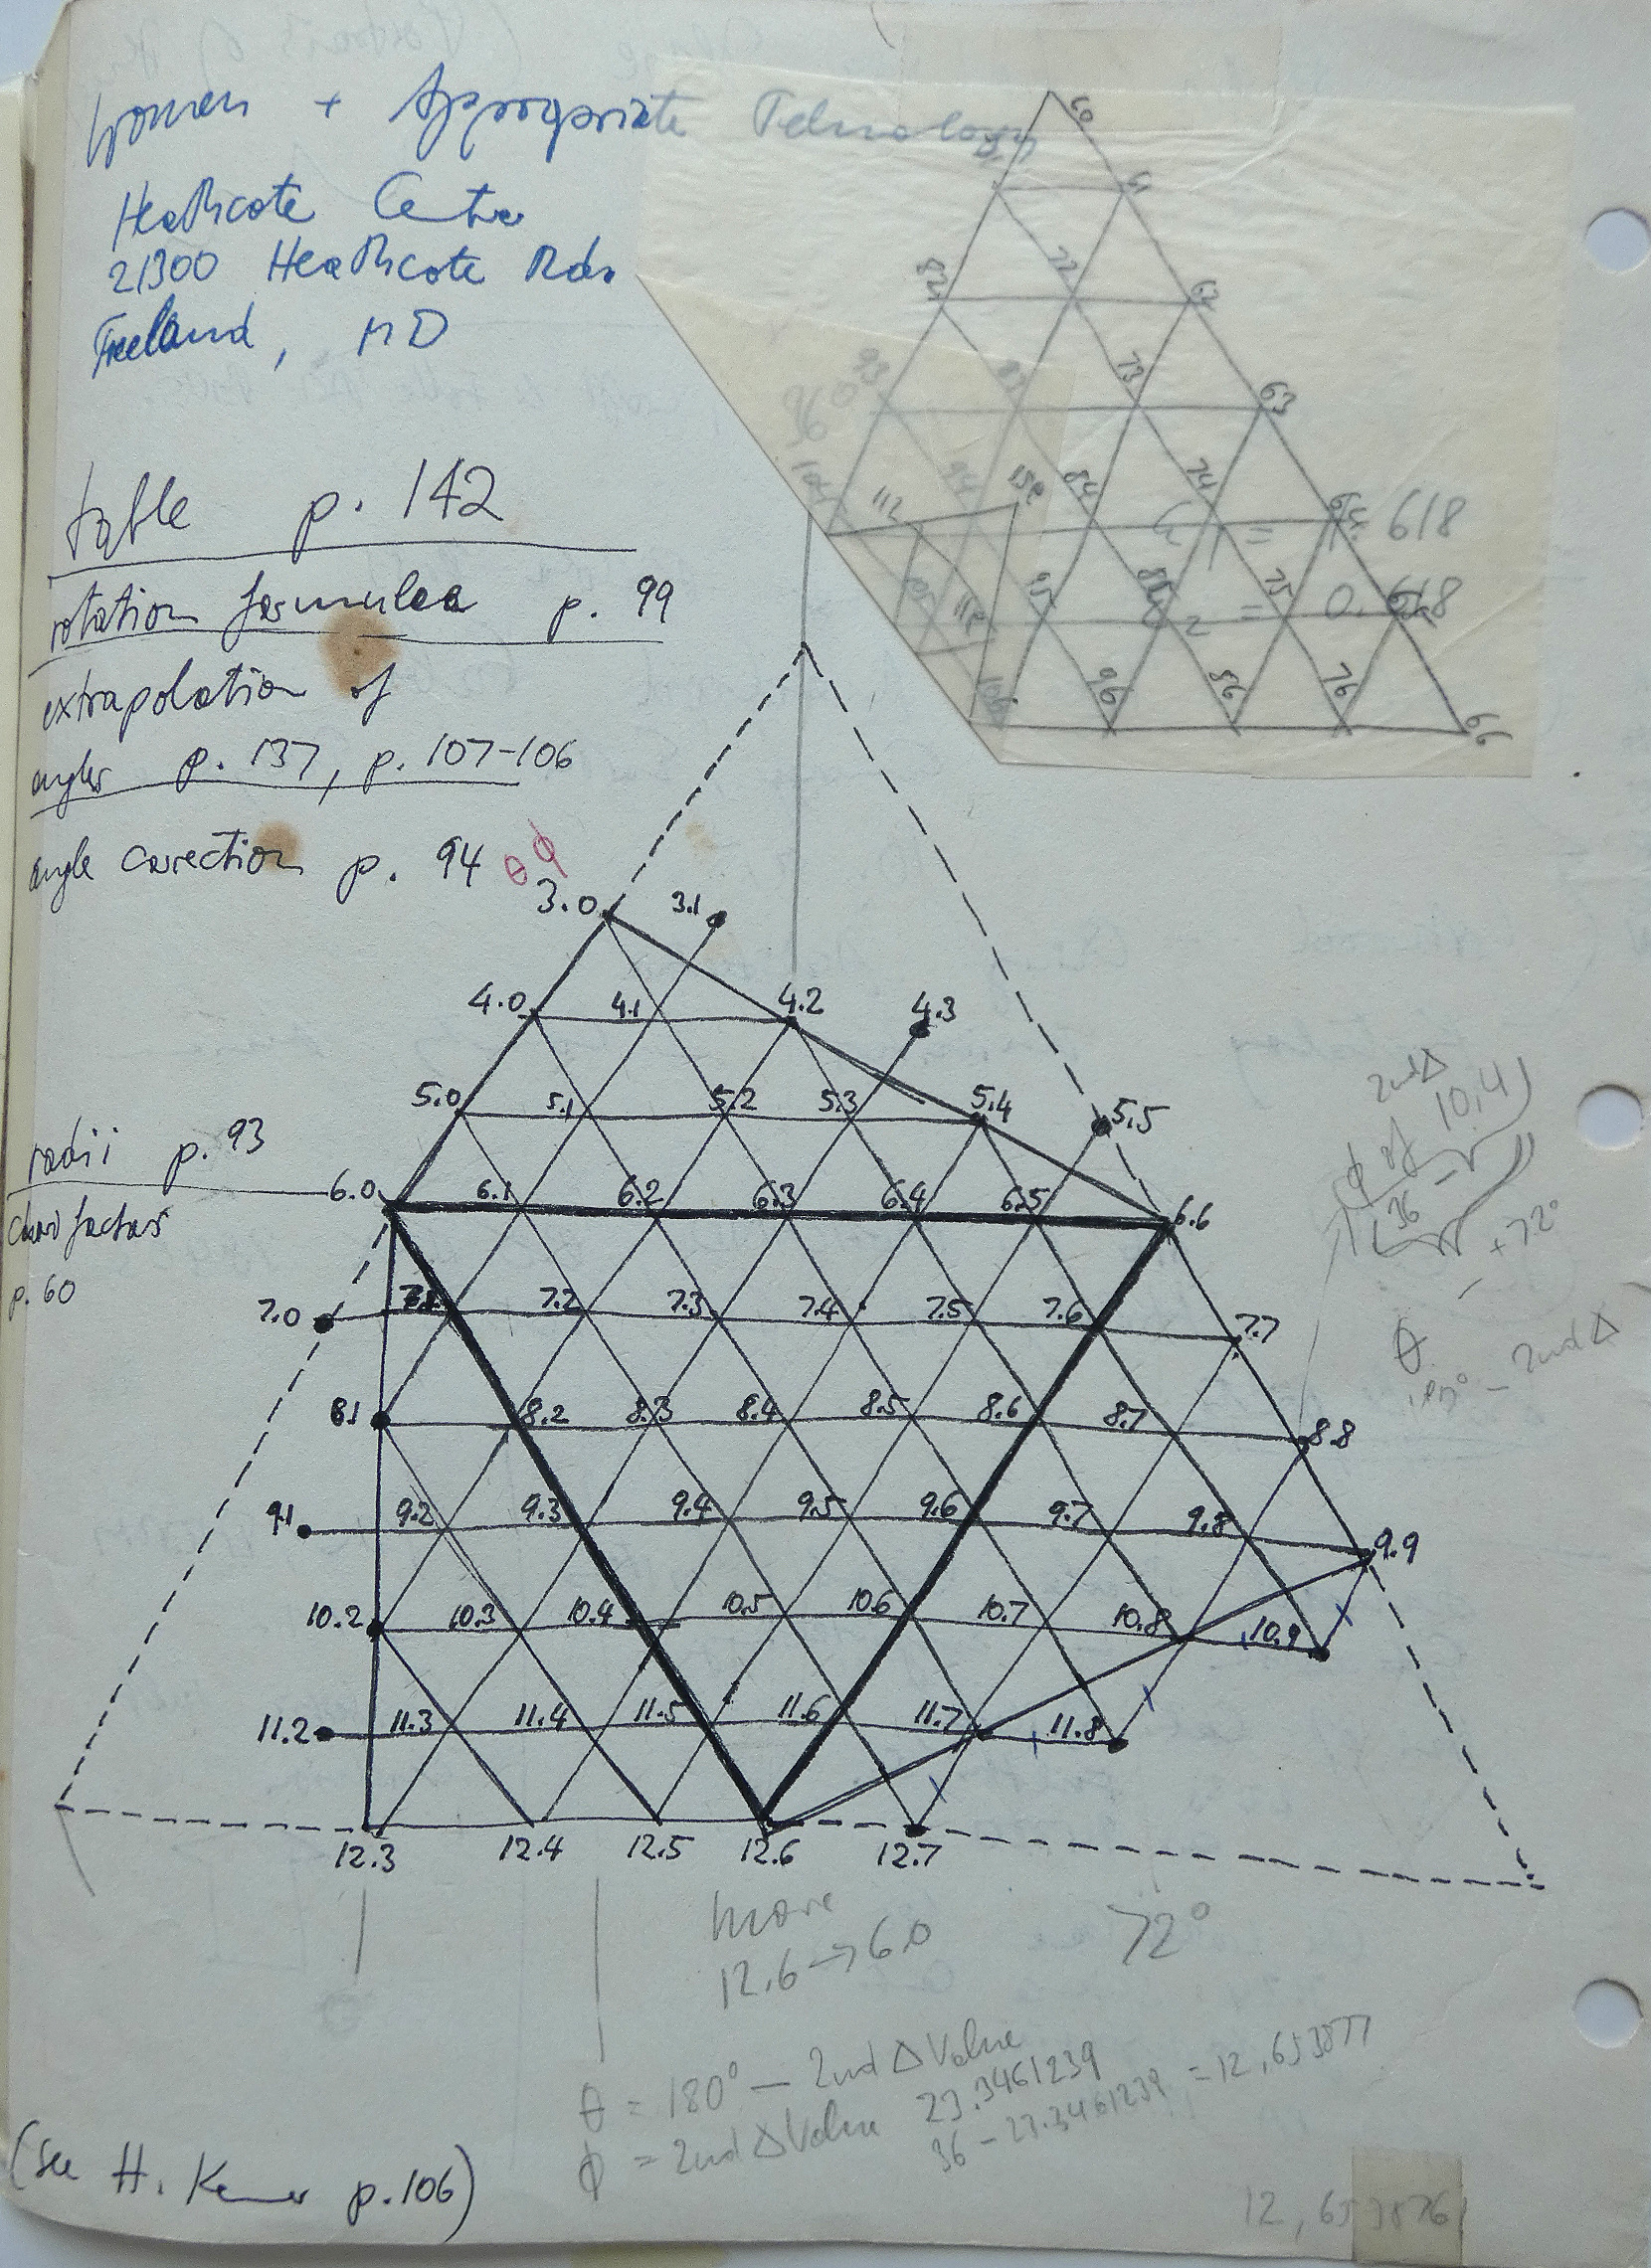 Women + Appropriate Technology
Heathcote Center
21300 Heathcote Rd.
Freeland, MD
table p. 142
rotation formulea p. 99
extrapolation of
angles p. 137, p. 107-106
angle correction p. 94
θ φ
radii p. 93
factors
p. 60
60
61
82 72 62
83 73 63
84 74
= 618
95 75
= 0.618
96 86 76 66
36°
112
3.0 3.1
4.0 4.1 4.2 4.3
5.0 5.1 5.2 5.3 5.4 5.5
6.0 6.1 6.2 6.3 6.4 6.5 6.6
7.0 7.1 7.2 7.3 7.4 7.5 7.6 7.7
8.1 8.2 8.3 8.4 8.5 8.6 8.7 8.8
9.1 9.2 9.3 9.4 9.5 9.6 9.7 9.8 9.9
10.2 10.3 10.4 10.5 10.6 10.7 10.8 10.9
11.2 11.3 11.4 11.5 11.6 11.7 11.8
12.3 12.4 12.5 12.6 12.7
2nd Δ
φ of 10.4
36 -
+72°
θ
180° - 2nd Δ
more
12.6 → 6.0
72°
θ = 180° - 2nd Δ Value
φ = 2nd Δ Value 23.3461239
36 - 23.3461239 = 12,653877
(see H. Kenner p. 106)
12,653876